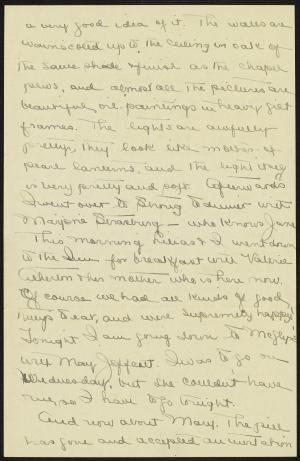 a very good idea of it. The walls are
wainscoted up to the ceiling in oak of
the same shade & finish as the chapel
pews, and almost all the pictures are
beautiful oil-paintings in heavy gilt
frames. The lights are awfully
pretty; they look like mother-of
pearl lanterns, and the light they
is very pretty and soft. Afterwards
I went over to Strong to dinner with
Marjorie - who knows Jane
This morning & I went down
to the Inn for breakfast with Valerie
& her mother who is here now.
Of course we had all kinds of good
things to eat, and were supremely happy!
Tonight I am going down to
with May. I was to go on
Wednesday, but she couldn't have
me, so I have to go tonight.
And now about Mary. The girl
has gone and accepted an invitation